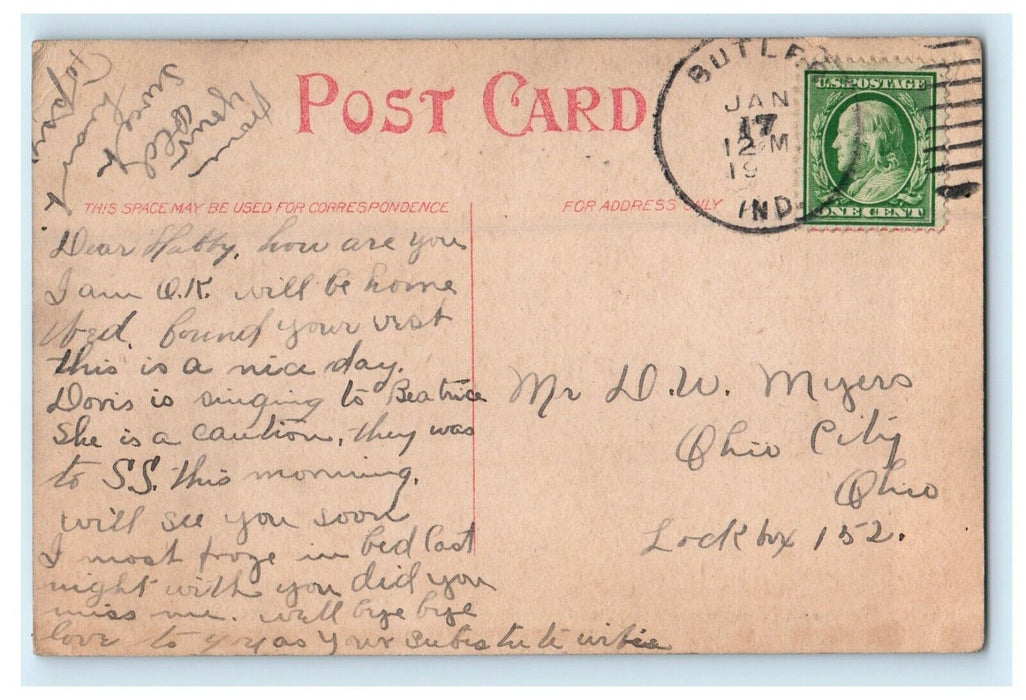 POST CARD
BUTLER
JAN
17
12 M
19
IND.
U.S. POSTAGE
ONE CENT
THIS SPACE MAY BE USED FOR CORRESPONDENCE
FOR ADDRESS ONLY
Dear Hubby, how are you
I am O.K. will be home
Wed. found your vest
this is a nice day.
Doris is singing to Beatrice
She is a caution, they was
to S.S. this morning.
will see you soon
I most froze in bed last
night with you did you
miss me. well bye bye
love to
your substitute wifie
From
your
Sweet
Mr D.W. Myers
Ohio City
Ohio
Lock bx 152.